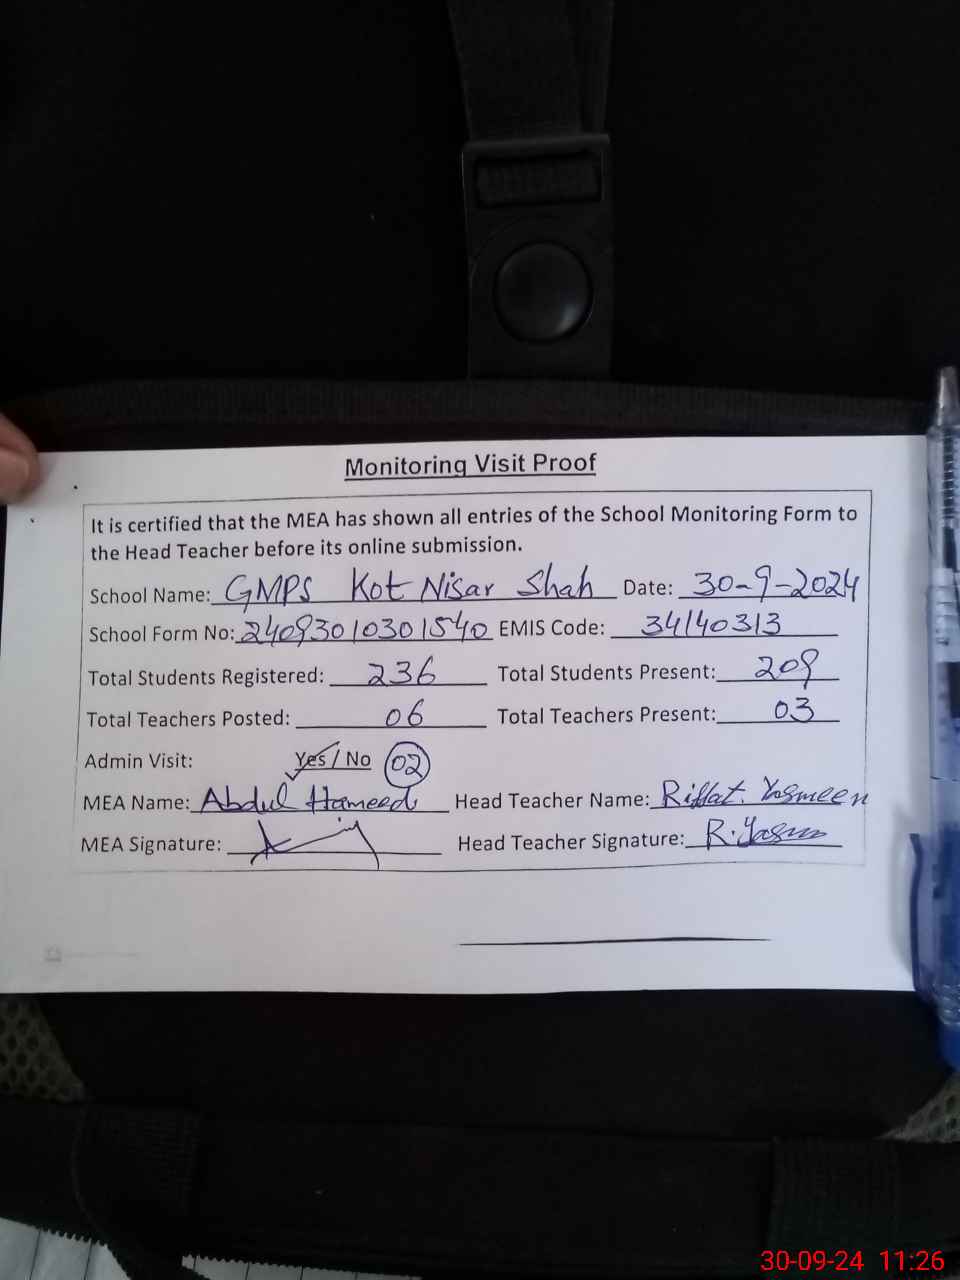 Monitoring Visit Proof
It is certified that the MEA has shown all entries of the School Monitoring Form to
the Head Teacher before its online submission.
School Name: GMPS Kot Nisar Shah Date: 30-9-2024
School Form No: 24093010301540 EMIS Code: 34140313
Total Students Registered: 236 Total Students Present: 209
Total Teachers Posted: 06 Total Teachers Present: 03
Admin Visit: Yes / No 02
MEA Name: Abdul Hameed Head Teacher Name: Riffat. Yasmeen
MEA Signature: Head Teacher Signature: R.Yasm
30-09-24 11:26